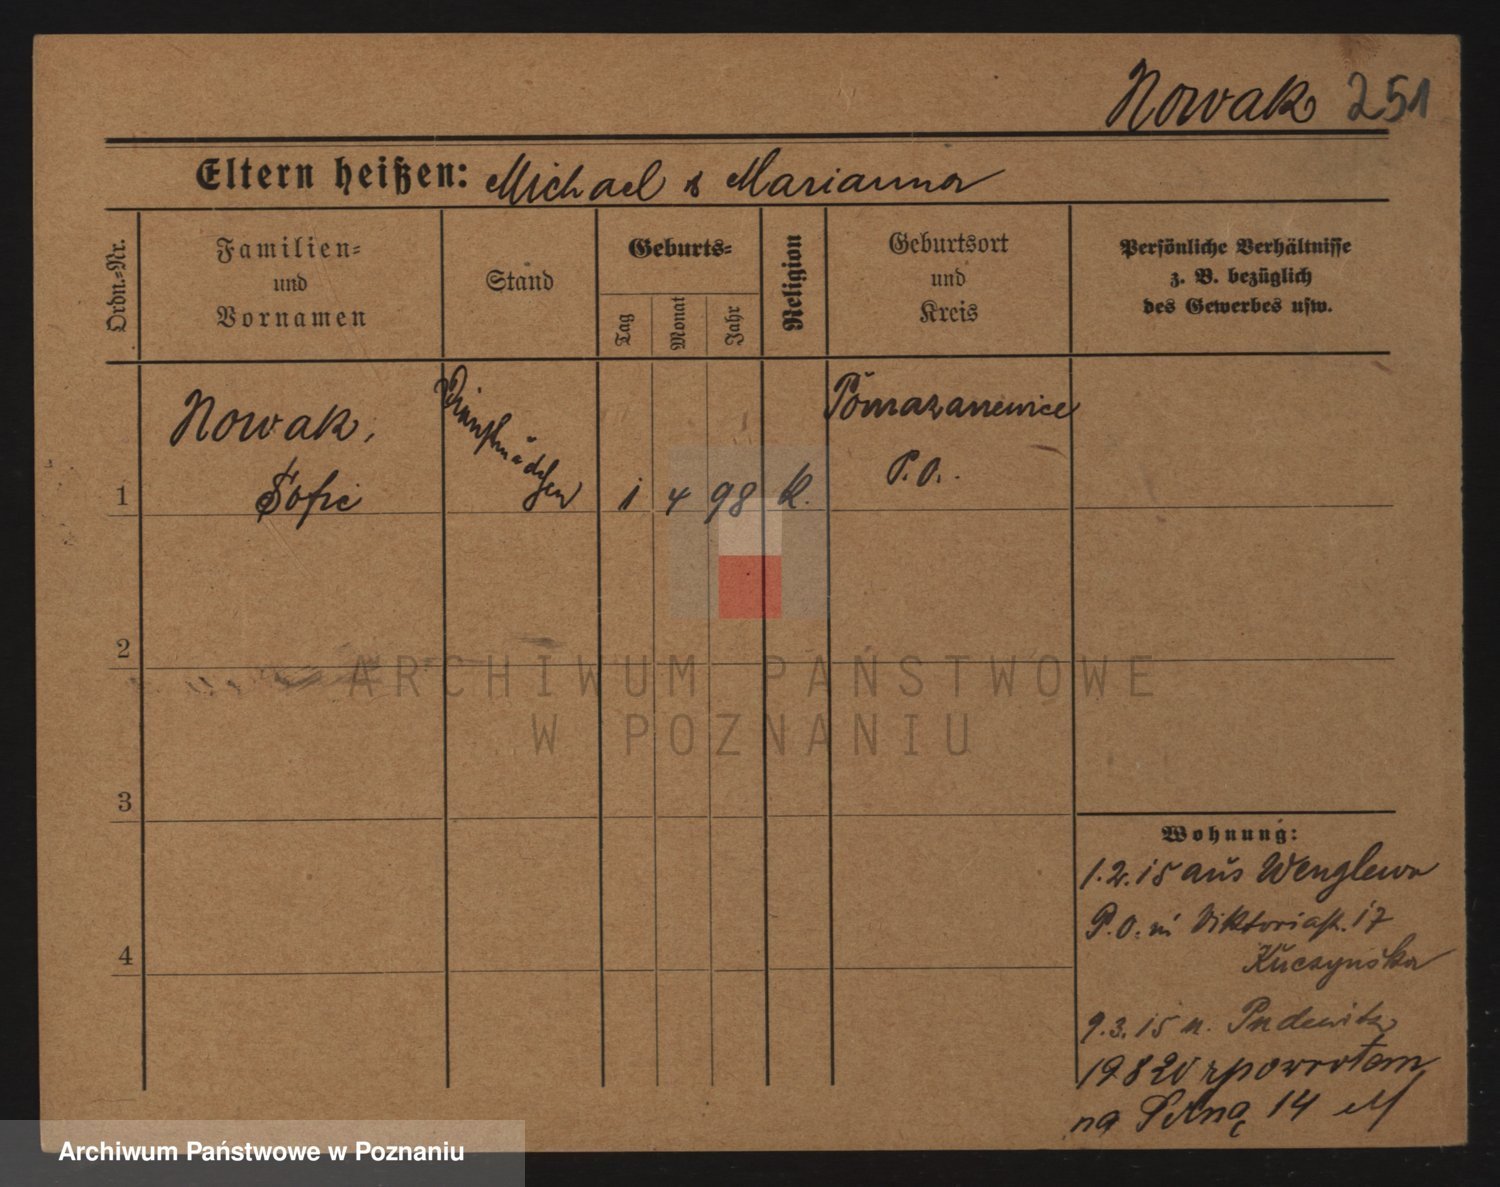 Nowak 251
Eltern heißen: Michael & Marianna
Ordn.-Nr.
Familien-
und
Vornamen
Stand
Geburts-
Tag
Monat
Jahr
Religion
Geburtsort
und
Kreis
Persönliche Verhältnisse
z. B. bezüglich
des Gewerbes usw.
1
Nowak,
Sofie
Dienstmädchen
1 4 98 K.
Pomarzanowice
P.O.
2
3
4
Wohnung:
1.2.15 aus Wenglewo
P.O. n Viktoriastr. 17
Kuczynska
9.3.15 n. Pudewitz
19 8 20 zpowrotem
na 14 M
ARCHIWUM PAŃSTWOWE
W POZNANIU
Archiwum Państwowe w Poznaniu